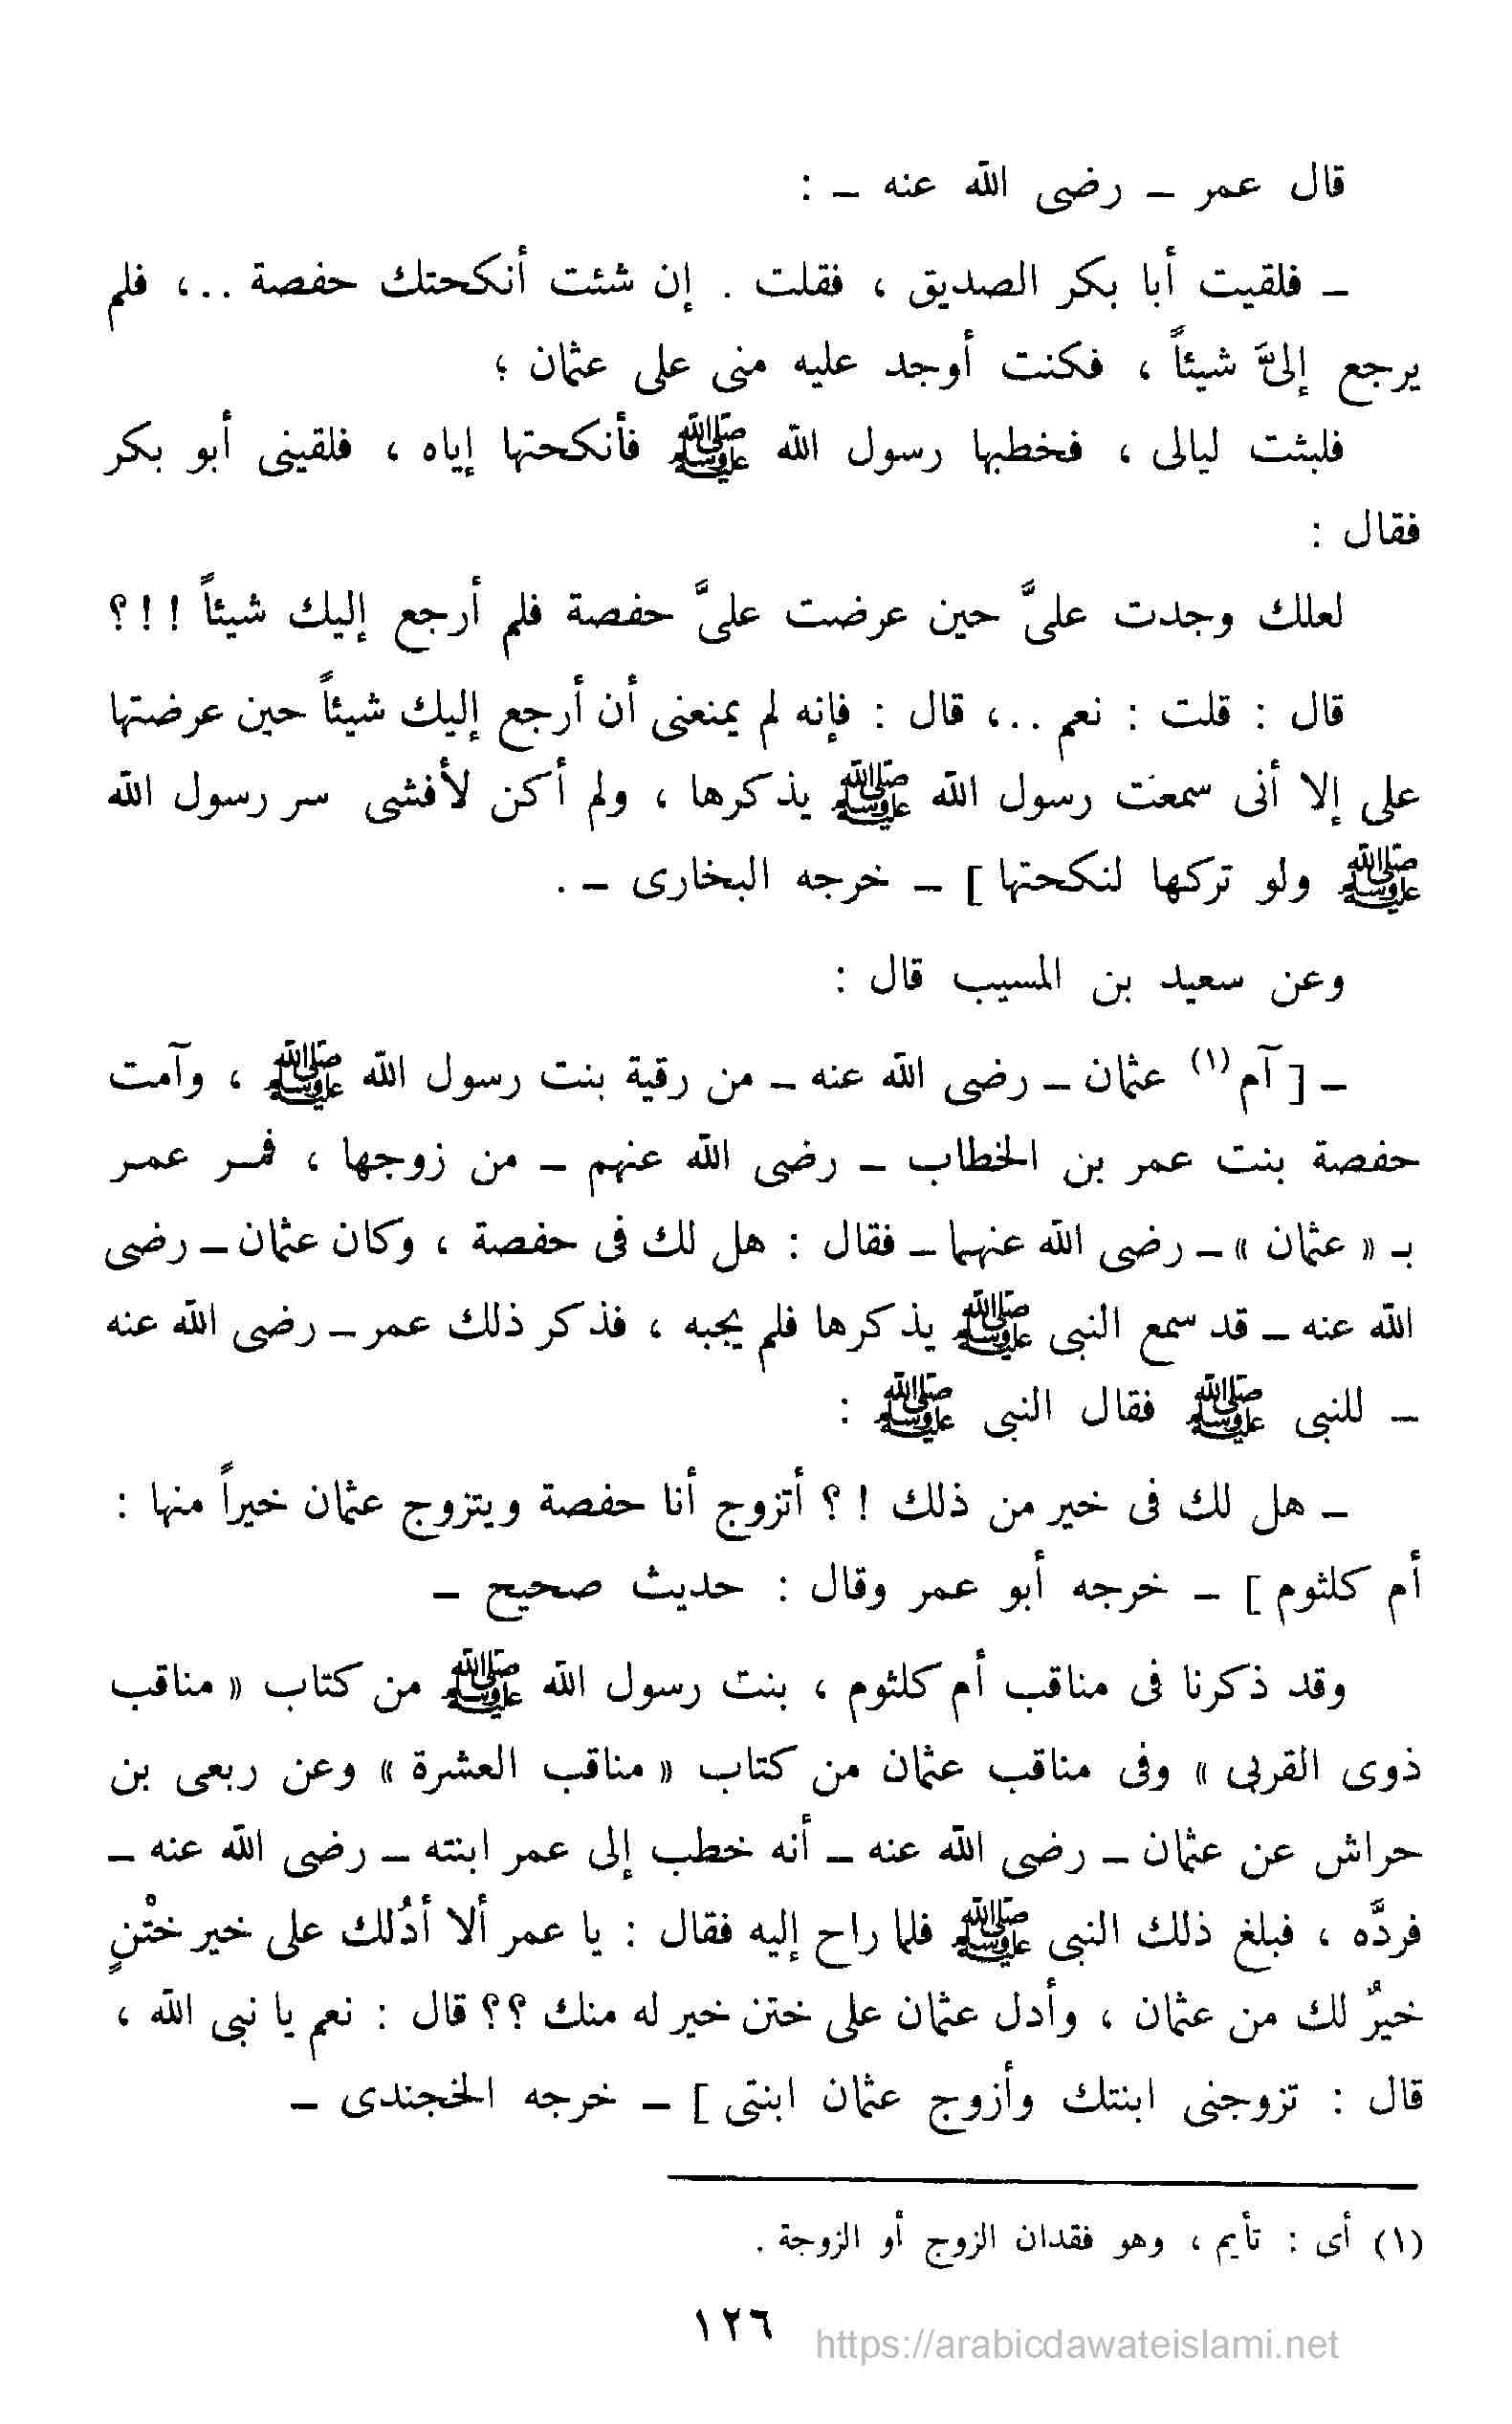 قال عمر – رضى الله عنه – :
– فلقيت أبا بكر الصديق ، فقلت . إن شئت أنكحتك حفصة ..، فلم
يرجع إلىَّ شيئاً ، فكنت أوجد عليه منى على عثمان ؛
فلبثت ليالى ، فخطبها رسول الله ﷺ فأنكحتها إياه ، فلقينى أبو بكر
فقال :
لعلك وجدت علىَّ حين عرضت علىَّ حفصة فلم أرجع إليك شيئاً !!؟
قال : قلت : نعم ..، قال : فإنه لم يمنعنى أن أرجع إليك شيئاً حين عرضتها
على إلا أنى سمعت رسول الله ﷺ يذكرها ، ولم أكن لأفشى سر رسول الله
ﷺ ولو تركها لنكحتها ] – خرجه البخارى – .
وعن سعيد بن المسيب قال :
– [ آم (١) عثمان – رضى الله عنه – من رقية بنت رسول الله ﷺ ، وآمت
حفصة بنت عمر بن الخطاب – رضى الله عنهم – من زوجها ، فمر عمر
بـ « عثمان » – رضى الله عنهما – فقال : هل لك فى حفصة ، وكان عثمان – رضى
الله عنه – قد سمع النبى ﷺ يذكرها فلم يجبه ، فذكر ذلك عمر – رضى الله عنه
– للنبى ﷺ فقال النبى ﷺ :
– هل لك فى خير من ذلك ! ؟ أتزوج أنا حفصة ويتزوج عثمان خيراً منها :
أم كلثوم ] – خرجه أبو عمر وقال : حديث صحيح –
وقد ذكرنا فى مناقب أم كلثوم ، بنت رسول الله ﷺ من كتاب « مناقب
ذوى القربى » وفى مناقب عثمان من كتاب « مناقب العشرة » وعن ربعى بن
حراش عن عثمان – رضى الله عنه – أنه خطب إلى عمر ابنته – رضى الله عنه –
فردَّه ، فبلغ ذلك النبى ﷺ فلما راح إليه فقال : يا عمر ألا أدُلك على خير ختْنٍ
خيرٌ لك من عثمان ، وأدل عثمان على ختن خير له منك ؟؟ قال : نعم يا نبى الله ،
قال : تزوجنى ابنتك وأزوج عثمان ابنتى ] – خرجه الخجندى –
(١) أى : تأيم ، وهو فقدان الزوج أو الزوجة .
١٢٦
https://arabicdawateislami.net